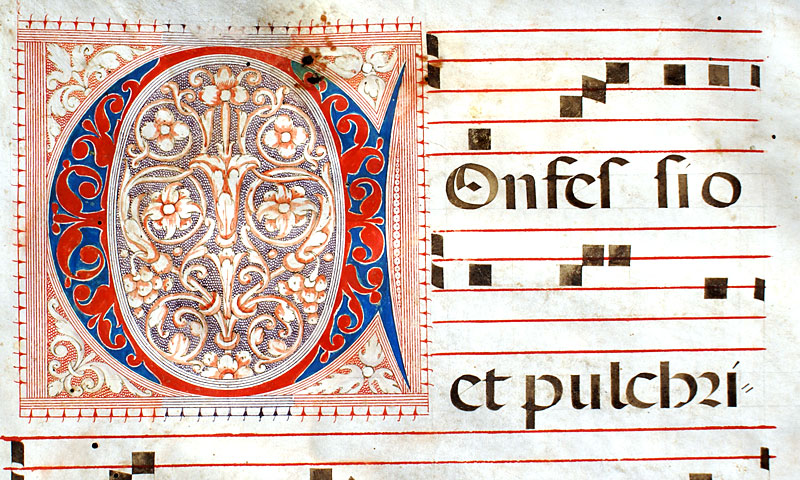 COnfes sio
et pulchri=